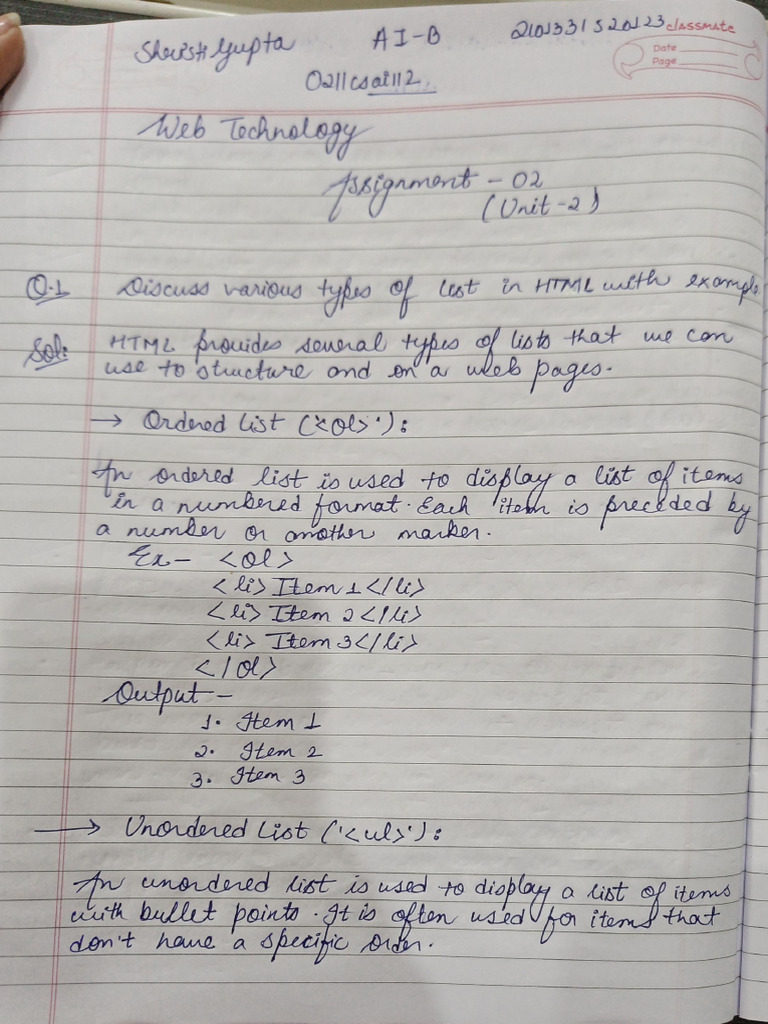 Shristi Gupta AI-B 2101331520123 classmate
Date
Page
0211csai112
Web Technology
Assignment - 02
(Unit-2)
Q.1 Discuss various types of list in HTML with example
Sol: HTML provides several types of lists that we can
use to structure and on a web pages.
→ Ordered list ('<ol>'):
An ordered list is used to display a list of items
in a numbered format. Each item is preceded by
a number or another marker.
Ex- <ol>
<li> Item 1 </li>
<li> Item 2 </li>
<li> Item 3 </li>
</ol>
Output -
1. Item 1
2. Item 2
3. Item 3
→ Unordered List ('<ul>'):
An unordered list is used to display a list of items
with bullet points. It is often used for items that
don't have a specific order.